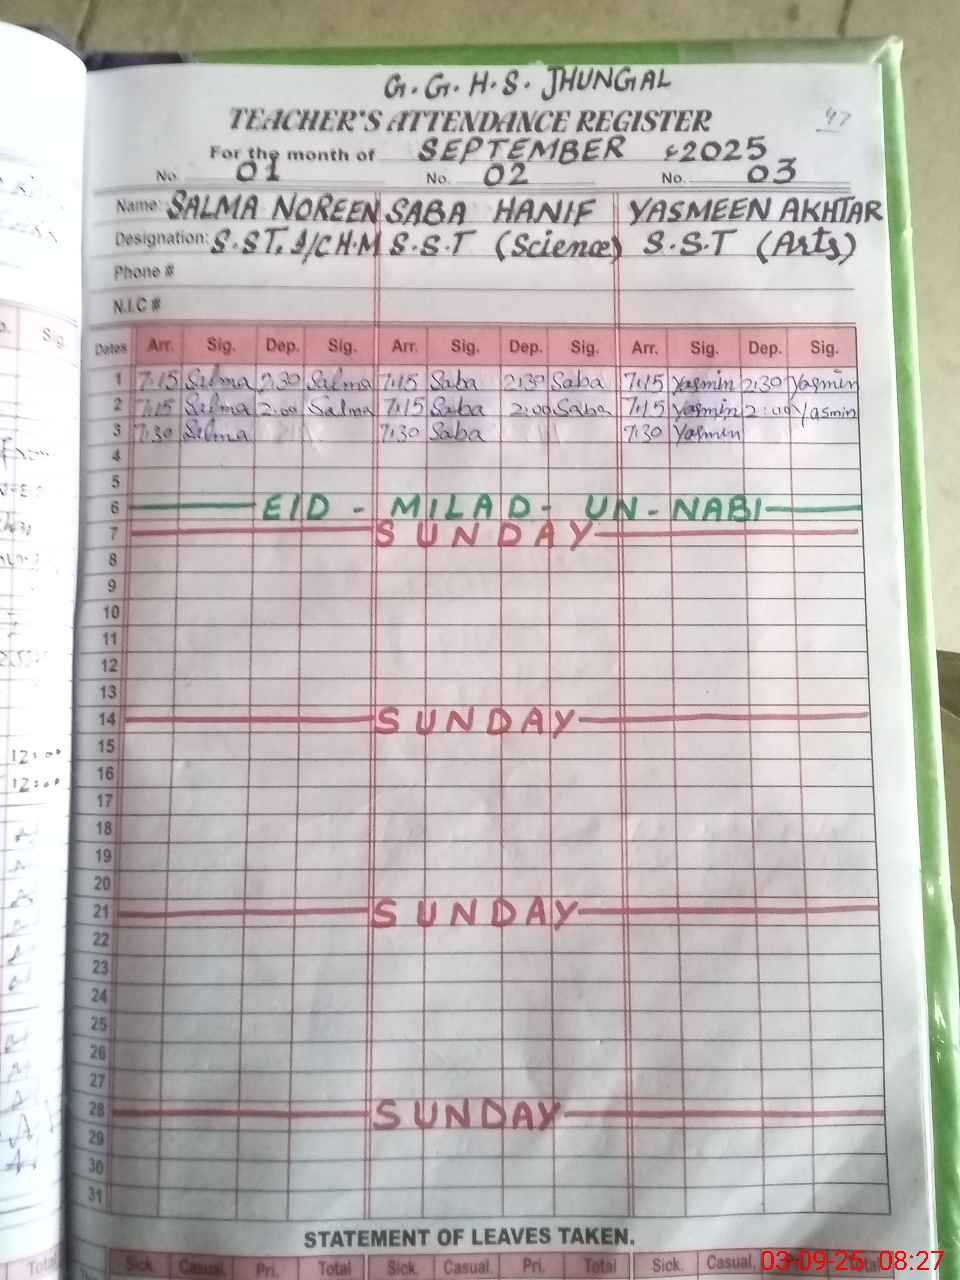 G.G.H.S. JHUNGAL
TEACHER'S ATTENDANCE REGISTER
47
For the month of SEPTEMBER 2025
No. 01 No. 02 No. 03
Name: SALMA NOREEN SABA HANIF YASMEEN AKHTAR
Designation: S.ST. I/C H.M S.S.T (Science) S.S.T (Arts)
Phone #
N.I.C #
Dates Arr. Sig. Dep. Sig. Arr. Sig. Dep. Sig. Arr. Sig. Dep. Sig.
1 7:15 Salma 2:30 Salma 7:15 Saba 2:30 Saba 7:15 Yasmin 2:30 Yasmin
2 7:15 Salma 2:00 Salma 7:15 Saba 2:00 Saba 7:15 Yasmin 2:00 Yasmin
3 7:30 Salma 7:30 Saba 7:30 Yasmin
4
5
6 EID - MILAD - UN - NABI
7 SUNDAY
8
9
10
11
12
13
14 SUNDAY
15
16
17
18
19
20
21 SUNDAY
22
23
24
25
26
27
28 SUNDAY
29
30
31
STATEMENT OF LEAVES TAKEN.
Sick. Casual. Pri. Total Sick. Casual. Pri. Total Sick. Casual.
03-09-25 08:27
12:00
12:00
Sig.
Total